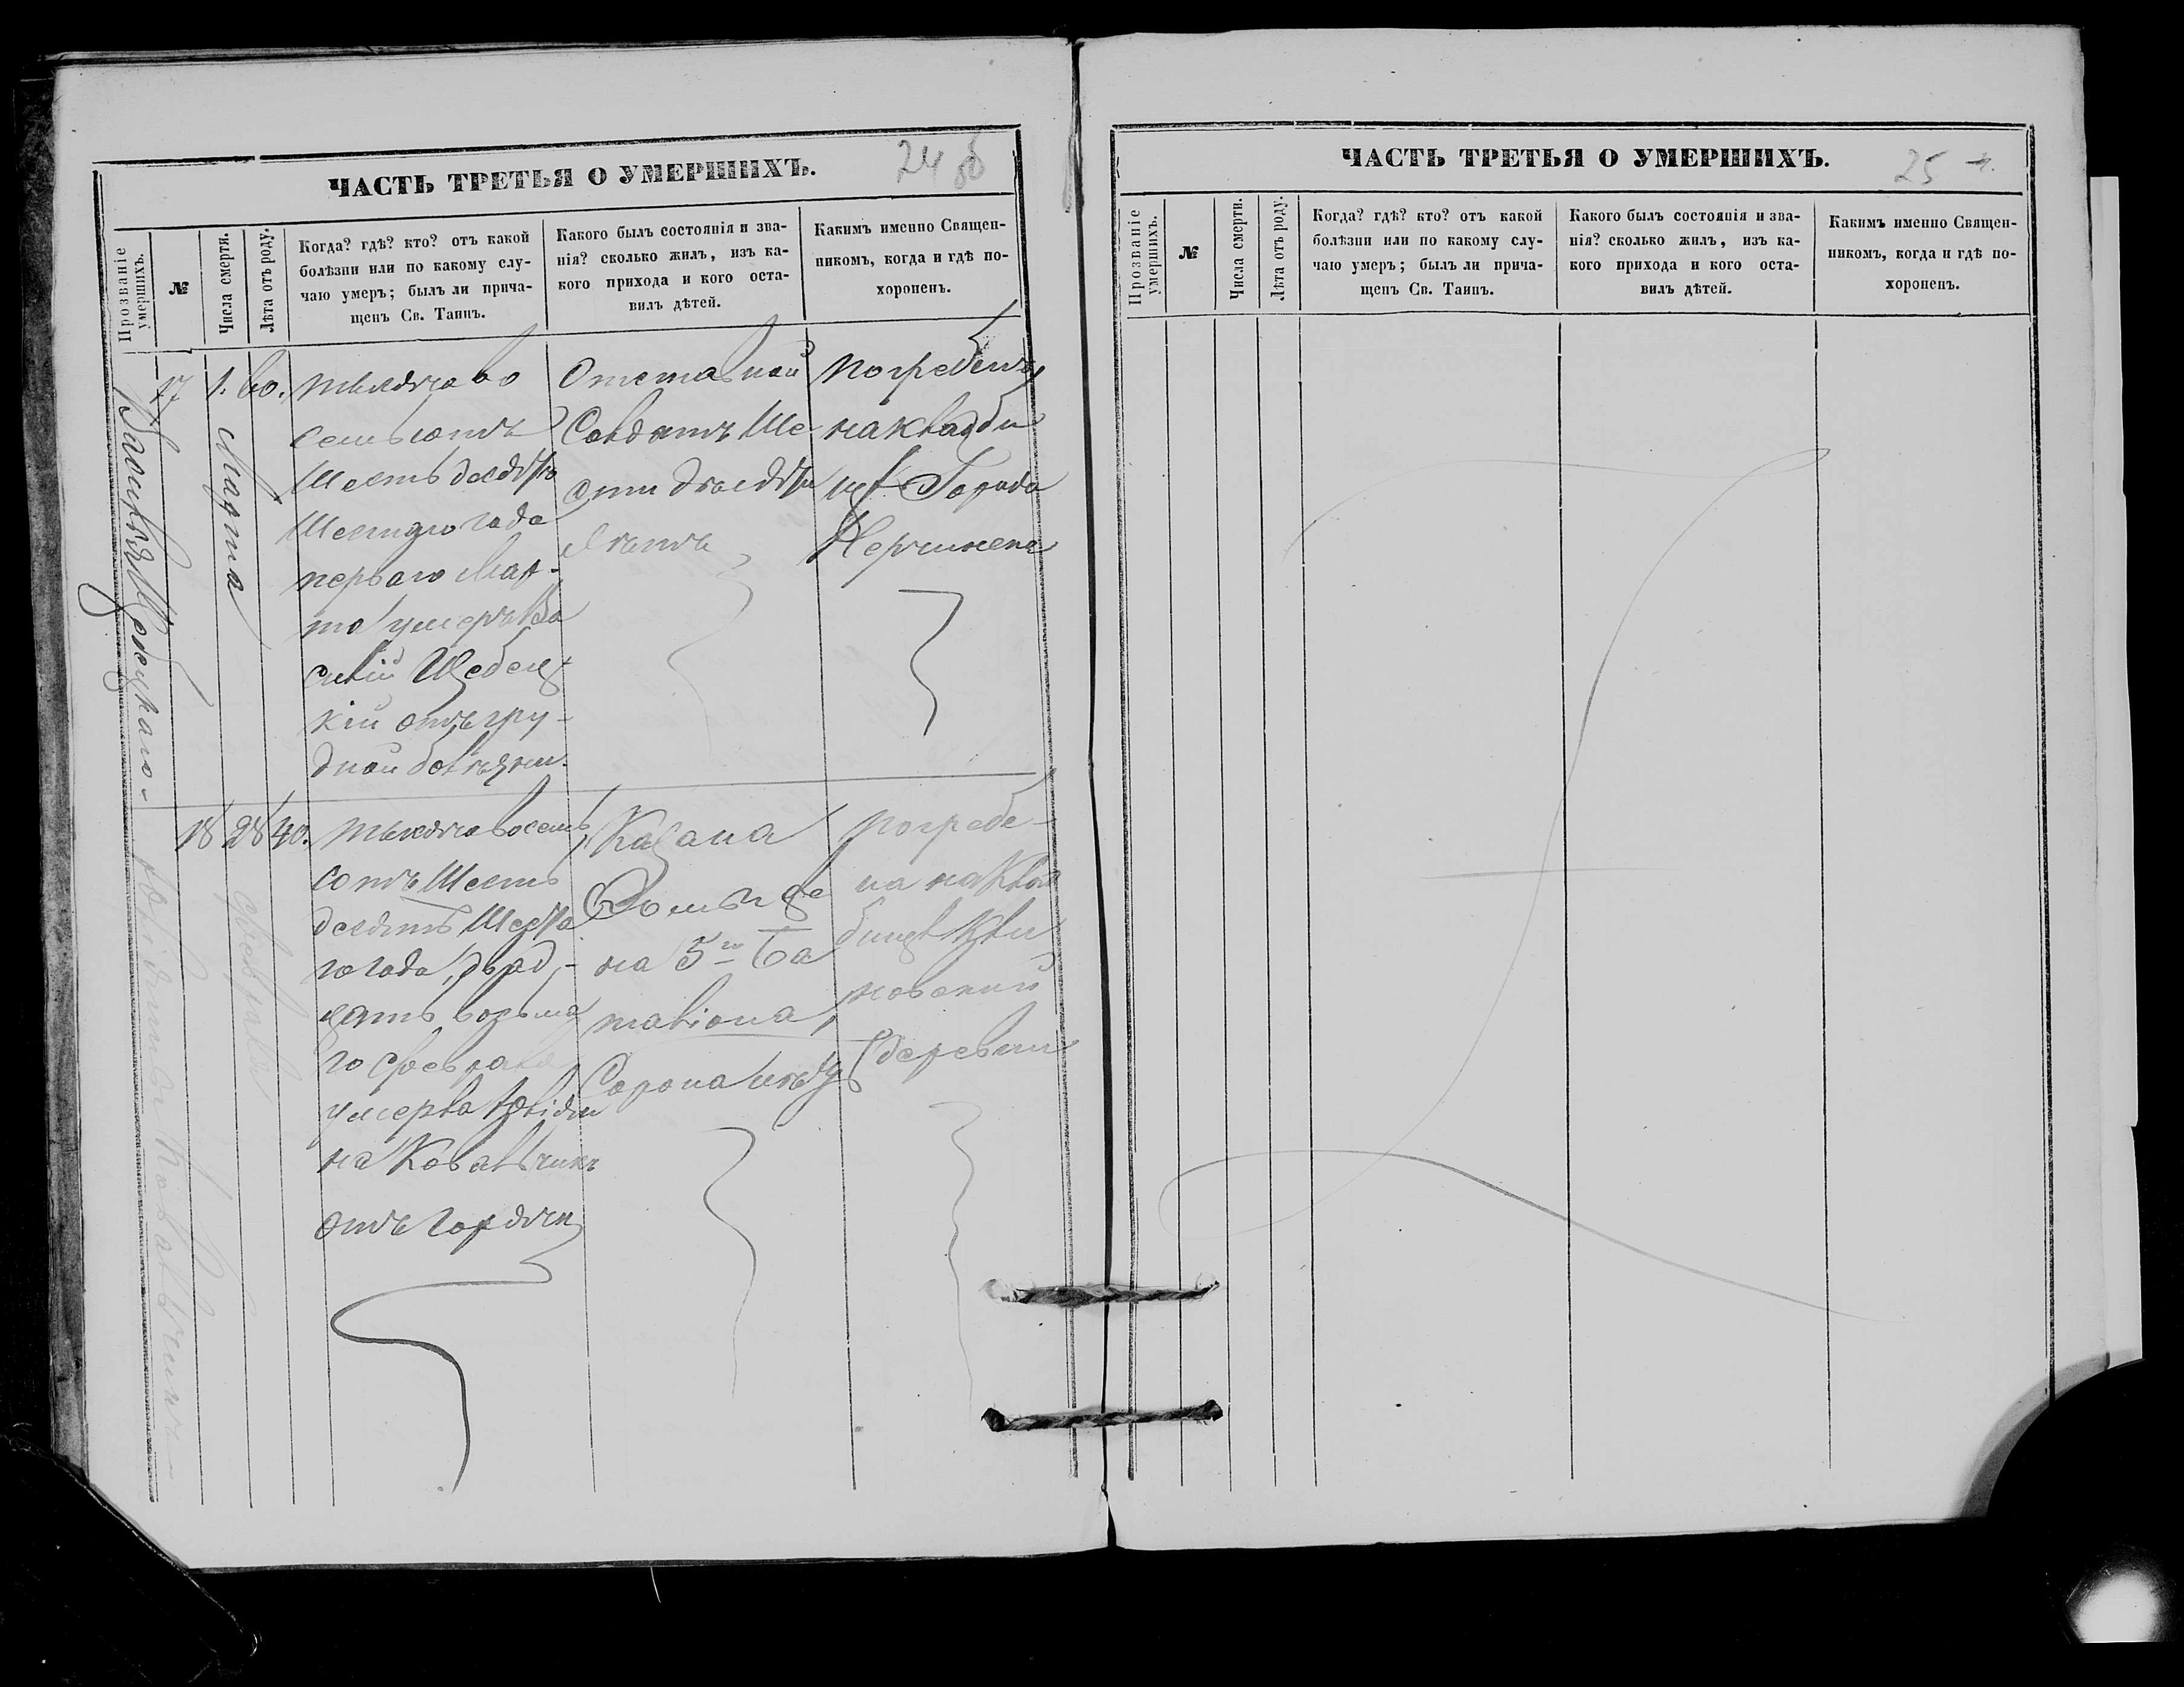 ЧАСТЬ ТРЕТЬЯ О УМЕРШИХЪ.
24 об
Прозваніе умершихъ.
№
Числа смерти.
Лѣта отъ роду.
Когда? гдѣ? кто? отъ какой
болѣзни или по какому слу-
чаю умеръ; былъ ли прича-
щенъ Св. Таинъ.
Какого былъ состоянія и зва-
нія? сколько жилъ, изъ ка-
кого прихода и кого оста-
вилъ дѣтей.
Какимъ именно Священ-
никомъ, когда и гдѣ по-
хороненъ.
17
1.
Марта
60.
тысяча во
семьсотъ
Шестьдесятъ
Шестаго года
перваго Мар-
та умеръ Ва
силій Щебец
кій отъ гру-
дной болѣзни.
Отставной
Солдатъ Ше
сти десяти
лѣтъ
погребенъ
на кладби
щѣ Города
Нерчинска
18
28
февраля
40.
тысяча восемь
сотъ Шесть
десятъ Шеста
го года, двад-
цать восьма
го февраля
умерла
на Ковальчикъ
отъ горячки
на 5го Ба
таліона,
погребе-
на на клад
бищѣ
деревни
ЧАСТЬ ТРЕТЬЯ О УМЕРШИХЪ.
25
Прозваніе умершихъ.
№
Числа смерти.
Лѣта отъ роду.
Когда? гдѣ? кто? отъ какой
болѣзни или по какому слу-
чаю умеръ; былъ ли прича-
щенъ Св. Таинъ.
Какого былъ состоянія и зва-
нія? сколько жилъ, изъ ка-
кого прихода и кого оста-
вилъ дѣтей.
Какимъ именно Священ-
никомъ, когда и гдѣ по-
хороненъ.